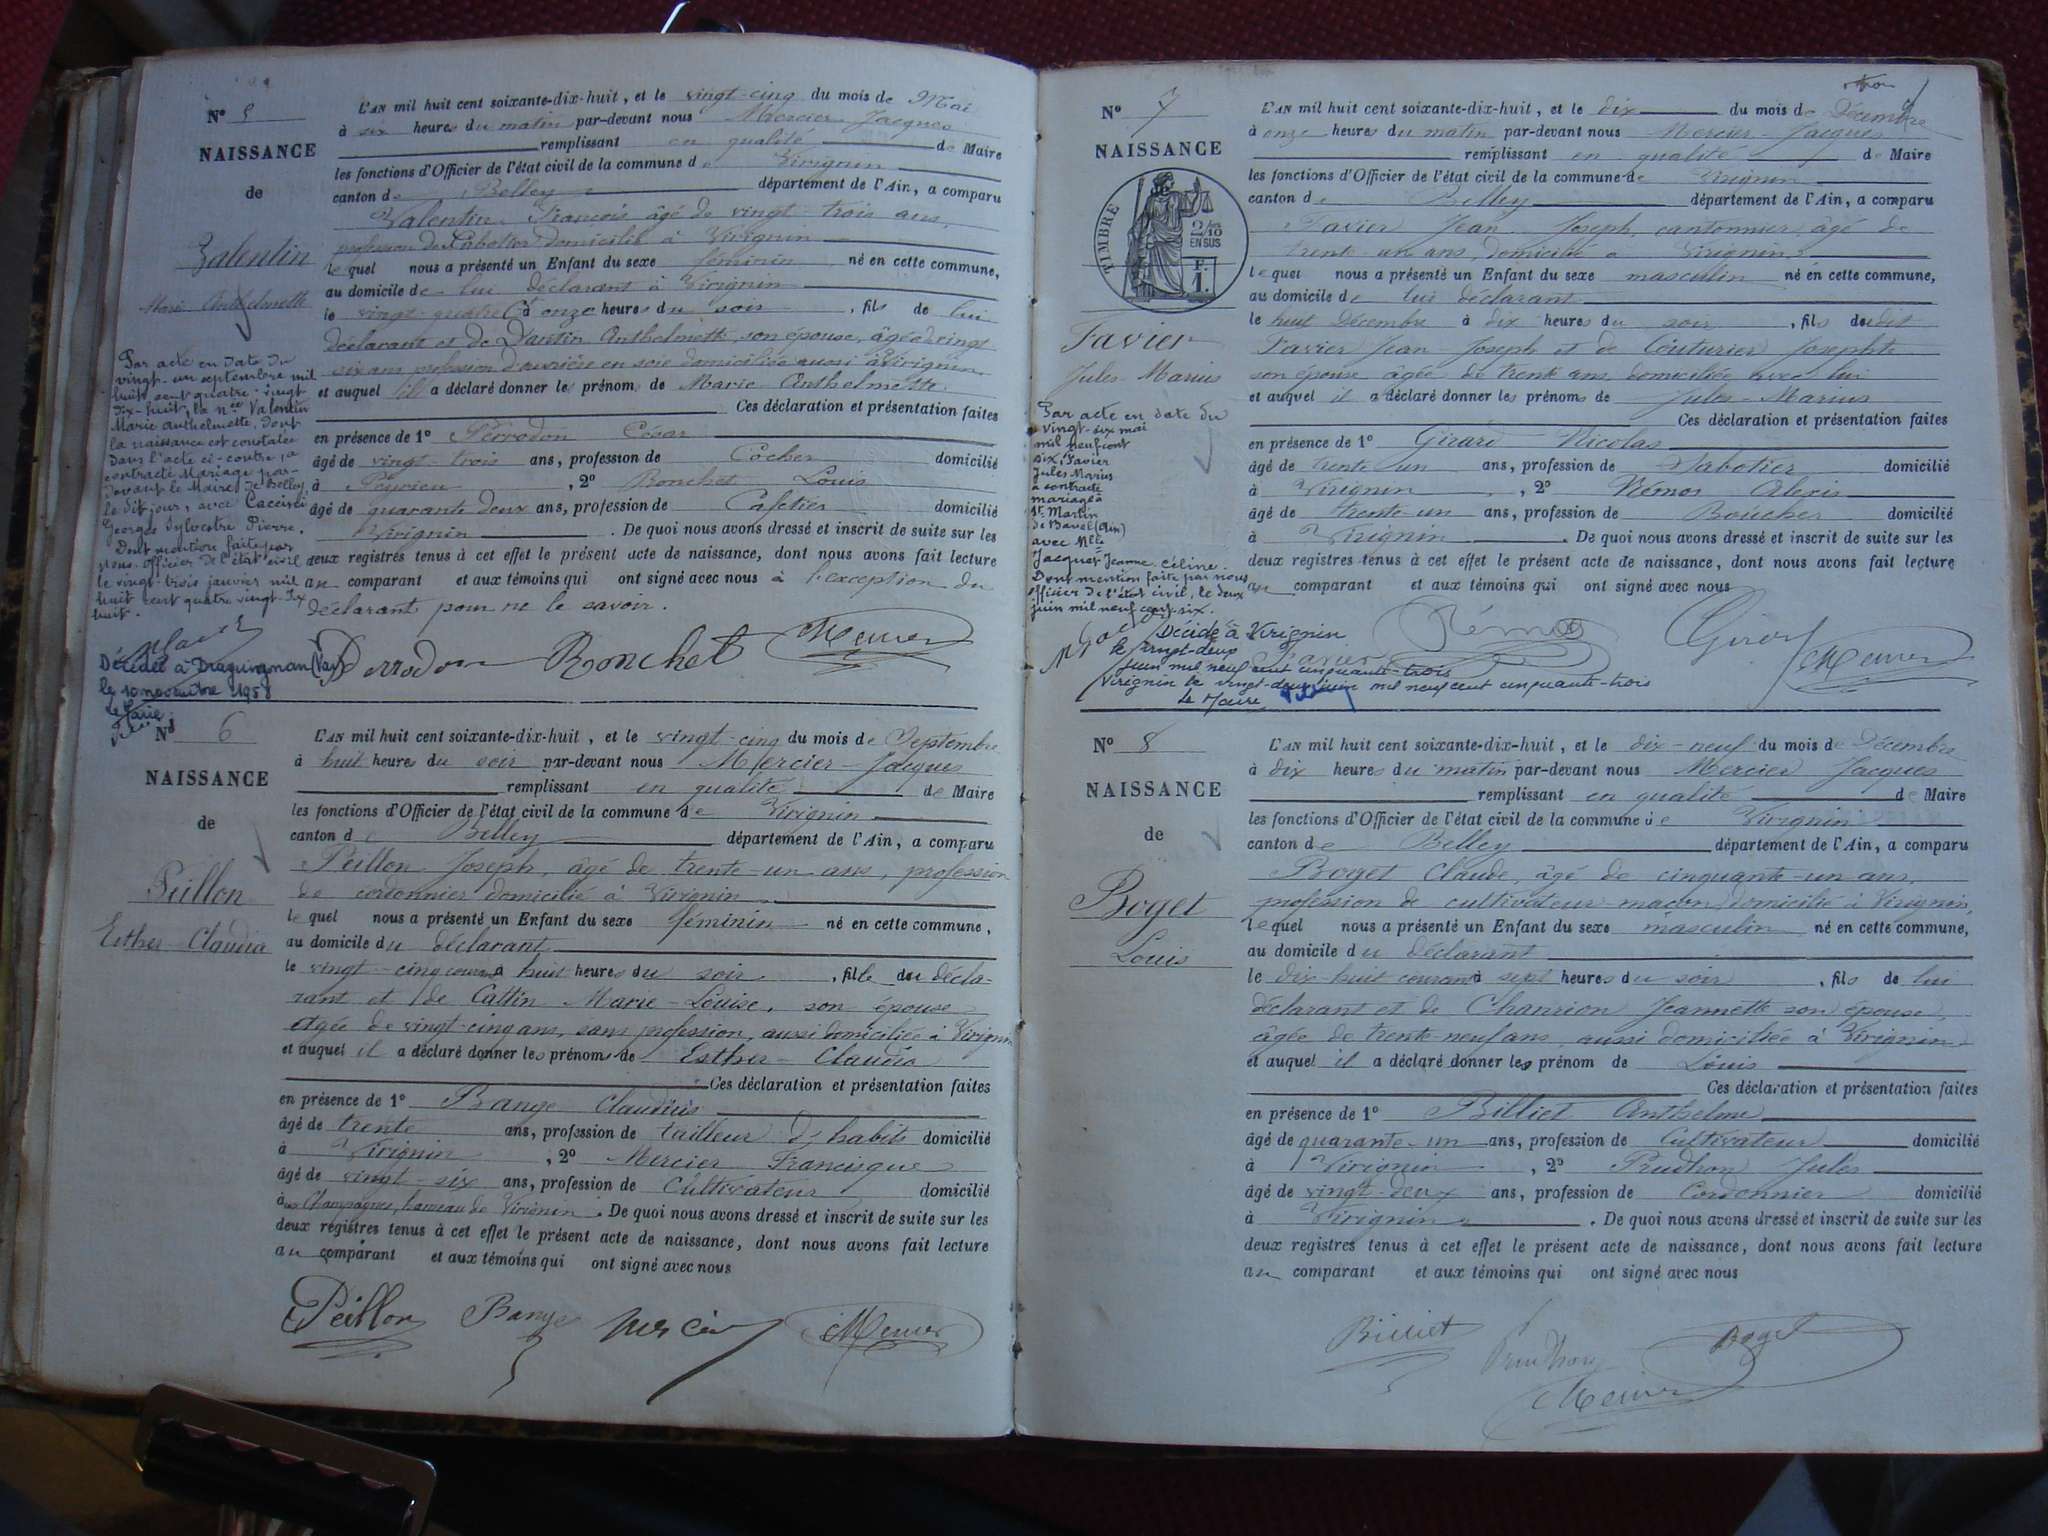 N° 5
NAISSANCE
de
Valentin
Marie Anthelmette
Par acte en date du
vingt-un septembre mil
huit cent quatre-vingt
dix-huit, la née Valentin
Marie Anthelmette, dont
la naissance est constatée
dans l'acte ci-contre, a
contracté Mariage par-
devant le Maire de Belley
le dit jour, avec
Georges Sylvestre Pierre.
Dont mention faite par
nous officier de l'état civil
le vingt-trois janvier mil
huit cent quatre vingt-dix
huit.
Décédée à Draguignan (Var)
le 10 novembre 1958
L'AN mil huit cent soixante-dix-huit, et le vingt-cinq du mois de Mai
à six heures du matin par-devant nous Mercier Jacques
remplissant en qualité de Maire
les fonctions d'Officier de l'état civil de la commune de Virignin
canton de Belley département de l'Ain, a comparu
Valentin François âgé de vingt-trois ans,
profession de Sabotier domicilié à Virignin
lequel nous a présenté un Enfant du sexe féminin né en cette commune,
au domicile de lui déclarant à Virignin
le vingt-quatre à onze heures du soir, fils de lui
déclarant et de Dantin Anthelmette, son épouse, âgée de vingt
six ans profession d'ouvrière en soie domiciliée aussi à Virignin
et auquel il a déclaré donner les prénom de Marie Anthelmette
Ces déclaration et présentation faites
en présence de 1° Perrodon César
âgé de vingt-trois ans, profession de Cocher domicilié
à Peyrieu, 2° Bonchet Louis
âgé de quarante deux ans, profession de Cafetier domicilié
Virignin. De quoi nous avons dressé et inscrit de suite sur les
deux registres tenus à cet effet le présent acte de naissance, dont nous avons fait lecture
au comparant et aux témoins qui ont signé avec nous à l'exception du
déclarant pour ne le savoir.
Perrodon Bonchet Mercier
N° 6
NAISSANCE
de
Peillon
Esther-Claudia
L'AN mil huit cent soixante-dix-huit, et le vingt-cinq du mois de Septembre
à huit heures du soir par-devant nous Mercier-Jacques
remplissant en qualité de Maire
les fonctions d'Officier de l'état civil de la commune de Virignin
canton de Belley département de l'Ain, a comparu
Peillon Joseph, âgé de trente-un ans, profession
de cordonnier domicilié à Virignin
lequel nous a présenté un Enfant du sexe féminin né en cette commune,
au domicile du déclarant
le vingt-cinq courant à huit heures du soir, fille du décla-
rant et de Cattin Marie-Louise, son épouse
âgée de vingt-cinq ans, sans profession, aussi domiciliée à Virignin
et auquel il a déclaré donner les prénoms de Esther-Claudia
Ces déclaration et présentation faites
en présence de 1° Bange Claudius
âgé de trente ans, profession de tailleur d'habits domicilié
à Virignin, 2° Mercier Francisque
âgé de vingt-six ans, profession de Cultivateur domicilié
à Champagnes, hameau de Virignin. De quoi nous avons dressé et inscrit de suite sur les
deux registres tenus à cet effet le présent acte de naissance, dont nous avons fait lecture
au comparant et aux témoins qui ont signé avec nous
Peillon Bange Mercier Mercier
N° 7
NAISSANCE
TIMBRE
2/10
EN SUS
F.
1.
Favier
Jules-Marius
Par acte en date du
vingt-six mai
mil neuf cent
six, Favier
Jules Marius
a contracté
mariage à
St Martin
de Bavel (Ain)
avec Melle
Jacquet Jeanne Céline.
Dont mention faite par nous
officier de l'état civil, le deux
juin mil neuf cent-six.
Décédé à Virignin
le vingt-deux
juin mil neuf cent cinquante-trois
Virignin le vingt-deux juin mil neuf cent cinquante-trois
Le Maire
L'AN mil huit cent soixante-dix-huit, et le dix du mois de Décembre
à onze heures du matin par-devant nous Mercier-Jacques
remplissant en qualité de Maire
les fonctions d'Officier de l'état civil de la commune de Virignin
canton de Belley département de l'Ain, a comparu
Favier Jean Joseph, cantonnier, âgé de
trente-un ans, domicilié à Virignin,
lequel nous a présenté un Enfant du sexe masculin né en cette commune,
au domicile de lui déclarant
le huit Décembre à dix heures du soir, fils dudit
Favier Jean Joseph et de Couturier Josephte
son épouse âgée de trente ans, domiciliée avec lui
et auquel il a déclaré donner les prénoms de Jules-Marius
Ces déclaration et présentation faites
en présence de 1° Girard Nicolas
âgé de trente un ans, profession de Sabotier domicilié
à Virignin, 2° Rémos Alexis
âgé de trente-un ans, profession de Boucher domicilié
à Virignin. De quoi nous avons dressé et inscrit de suite sur les
deux registres tenus à cet effet le présent acte de naissance, dont nous avons fait lecture
au comparant et aux témoins qui ont signé avec nous
Favier Girard Mercier
N° 8
NAISSANCE
de
Boget
Louis
L'AN mil huit cent soixante-dix-huit, et le dix-neuf du mois de Décembre
à dix heures du matin par-devant nous Mercier Jacques
remplissant en qualité de Maire
les fonctions d'Officier de l'état civil de la commune de Virignin
canton de Belley département de l'Ain, a comparu
Boget Claude, âgé de cinquante-un ans,
profession de cultivateur-maçon domicilié à Virignin,
lequel nous a présenté un Enfant du sexe masculin né en cette commune,
au domicile du déclarant
le dix-huit courant à sept heures du soir, fils de lui
déclarant et de Chanrion Jeannette son épouse,
âgée de trente-neuf ans, aussi domiciliée à Virignin
et auquel il a déclaré donner les prénom de Louis
Ces déclaration et présentation faites
en présence de 1° Billiet Anthelme
âgé de quarante-un ans, profession de Cultivateur domicilié
à Virignin, 2° Prudhon Jules
âgé de vingt-deux ans, profession de Cordonnier domicilié
à Virignin. De quoi nous avons dressé et inscrit de suite sur les
deux registres tenus à cet effet le présent acte de naissance, dont nous avons fait lecture
au comparant et aux témoins qui ont signé avec nous
Billiet Prudhon Boget
Mercier